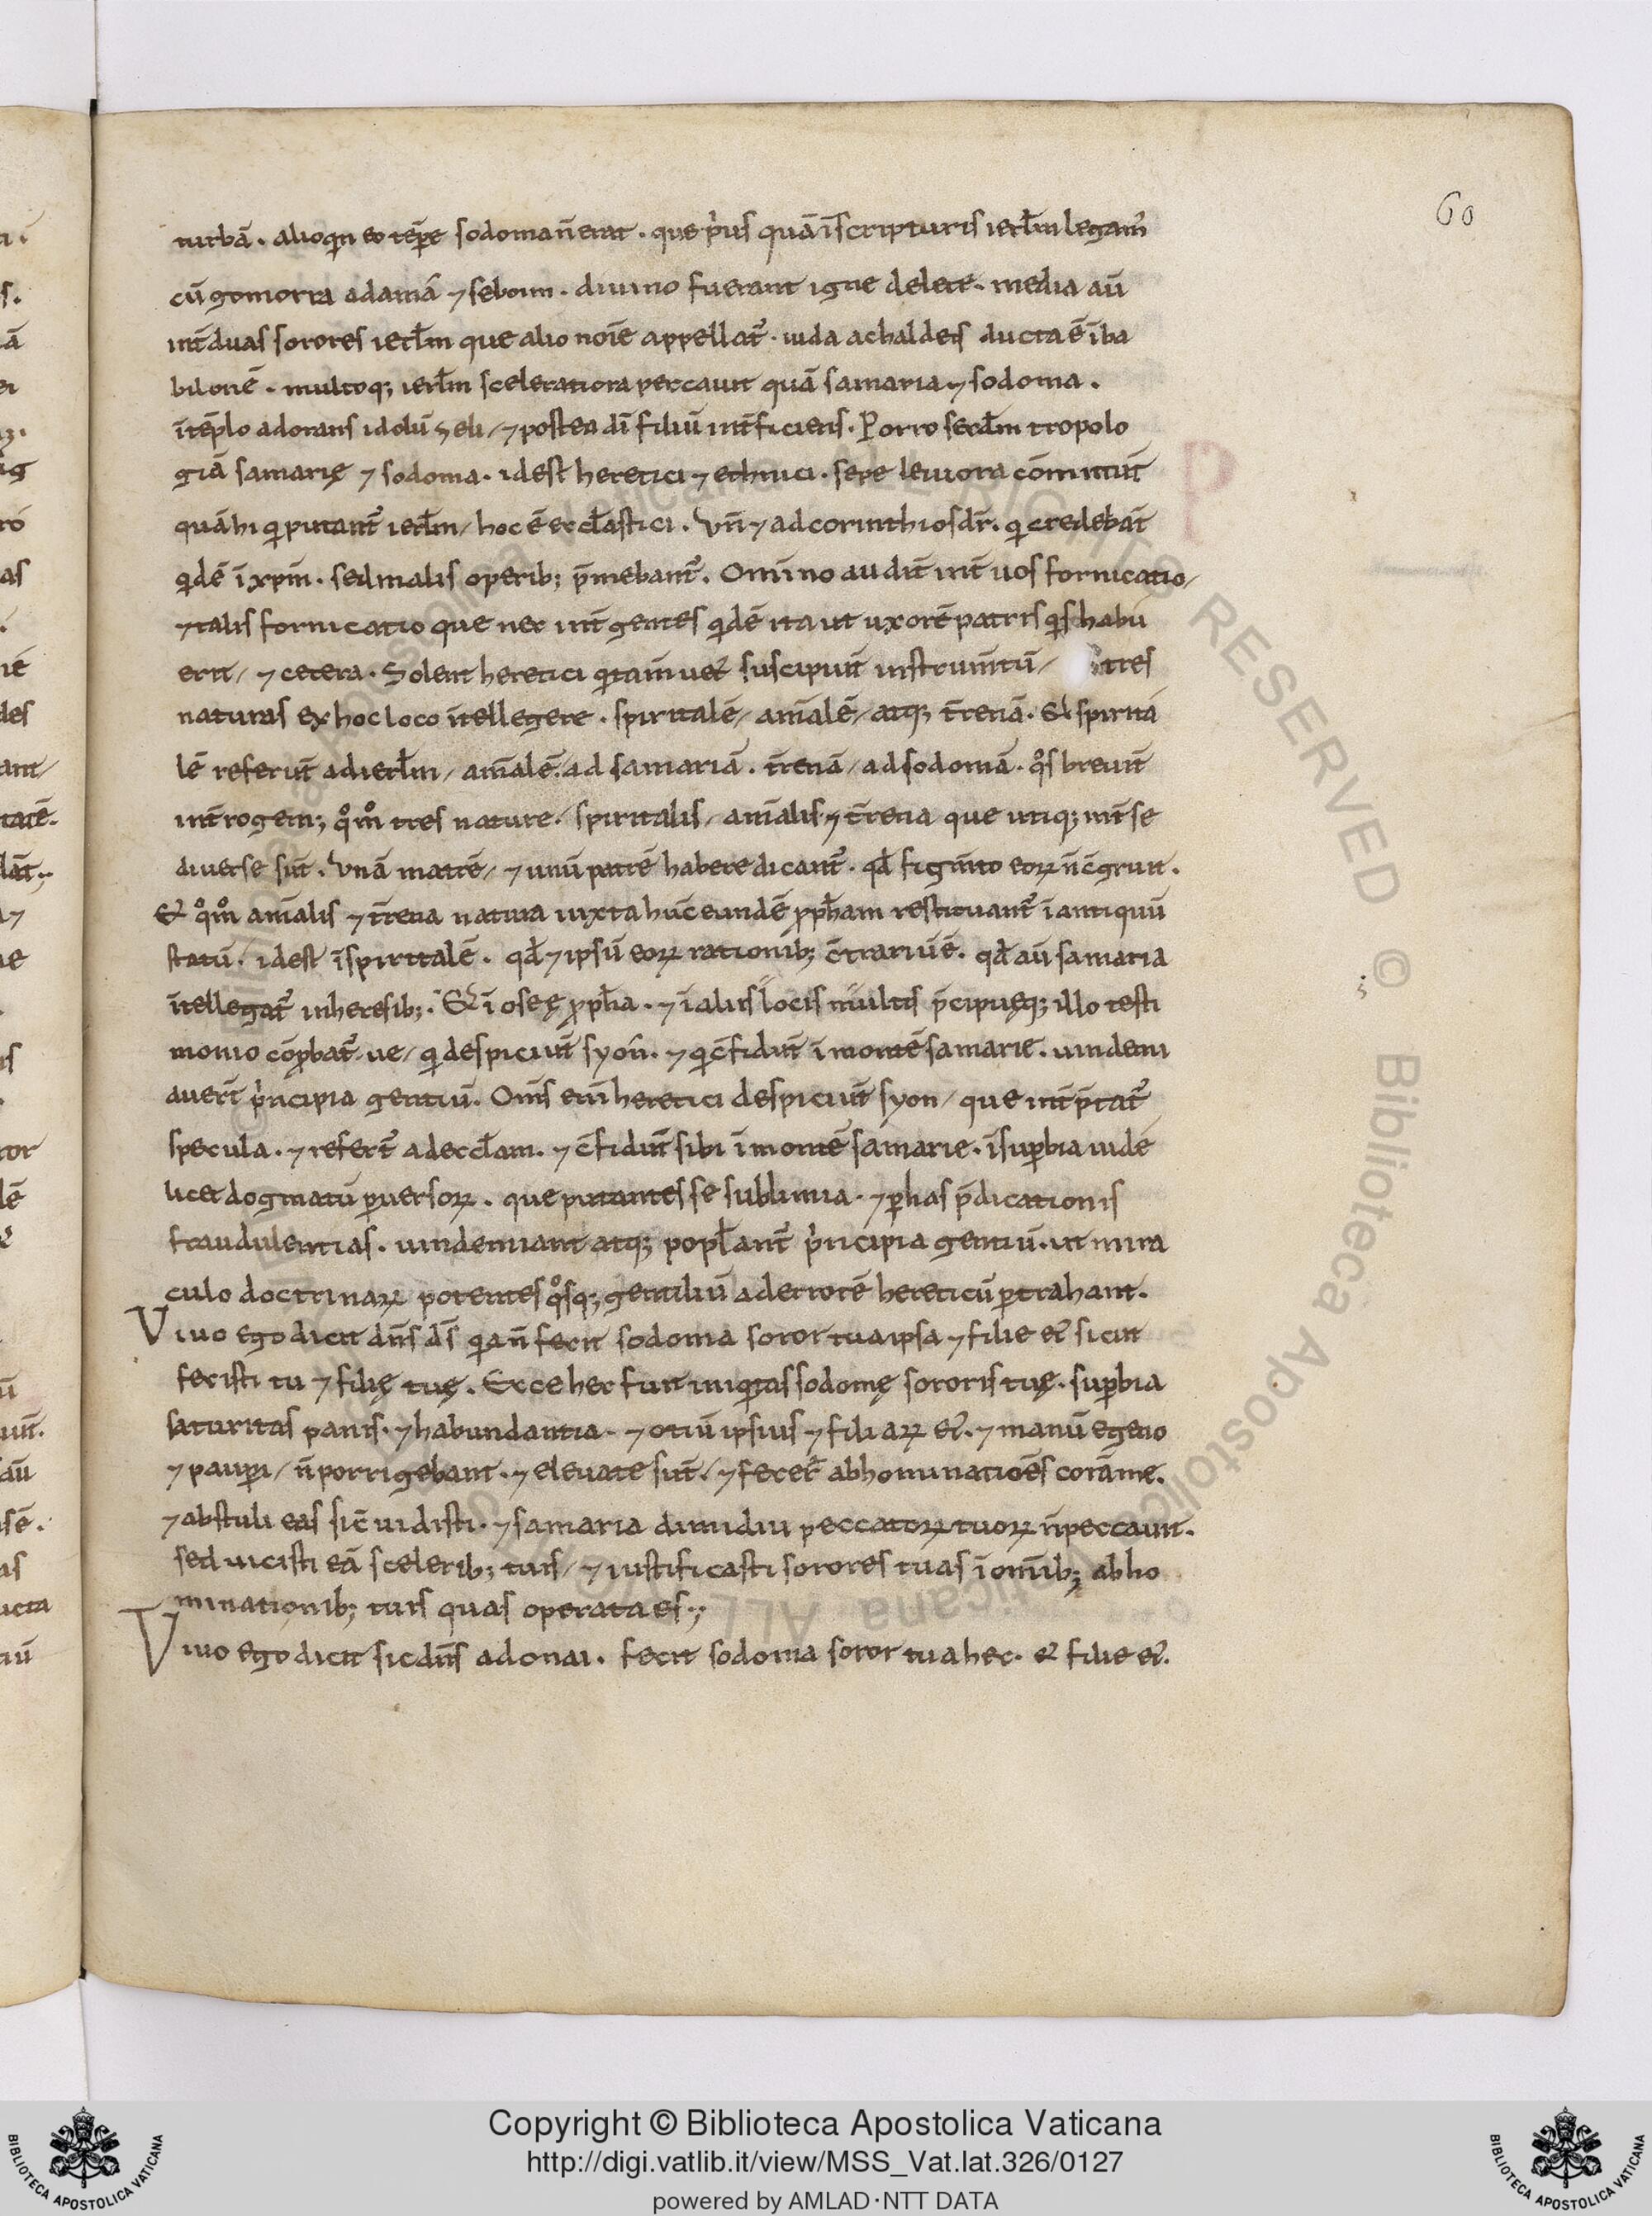 60
turbā. alioqin eo tēpe sodoma n̄ erat. que prius quā ī scripturis ierl̄m legam̄
cū gomorra adama ⁊ seboim. diuino fuerant igne delete. media aū
int̄ duas sorores ierl̄m que alio noīe appellat̄. iuda a chaldeis ducta ē ī ba
bilonē. multoq; ierl̄m sceleratiora peccauit quā samaria ⁊ sodoma.
ī tēplo adorans idolū heli / ⁊ postea dī filiū int̄ficiens. Porro secd̄m tropolo
giā samarię ⁊ sodoma. id est heretici ⁊ ethnici. sepe leuiora cōmittūt
quā hi qi putant̄ ierl̄m / hoc ē eccl̄astici. Vn̄ ⁊ ad corinthios dr̄. qi credebāt
qidē ī xp̄m. sed malis operib; p̄mebant̄. Omīno audit̄ int̄ uos fornicatio /
⁊ talis fornicatio que nec int̄ gentes qidē ita ut uxorē patris qis habu
erit / ⁊ cetera. Solent heretici qi tam̄ uet̄ suscipiūt instrum̄tū / tres
naturas ex hoc loco ītellegere. spiritalē / am̄alē / atq; t̄renā. Et spirita
lē referūt ad ierl̄m / am̄alē ad samariā. t̄renā / ad sodomā. qos breuit̄
int̄rogem; qom̊ tres nature / spiritalis / am̄alis ⁊ t̄rena que utiq; int̄ se
diuerse sūt. Vnā matrē / ⁊ unū patrē habere dicant̄. qd̄ figm̄to eoꝝ n̄ c̄gruit.
Et qom̊ am̄alis ⁊ t̄rena natura iuxta hūc eundē ꝓph̄am restituant̄ ī antiquū
statū. id est ī spiritalē. qd̄ ⁊ ipsū eoꝝ rationib; c̄trariū ē. qd̄ aū samaria
ītellegat̄ in heresib;. Et ī oseę ꝓph̄a. ⁊ ī aliis locis multis p̄cipueq; illo testi
monio cōꝓbat̄ ue / qi despiciūt syon. ⁊ qi c̄fidūt ī montē samarie. uindemi
auer̄t principia gentiū. Om̄s eni heretici despiciūt syon / que int̄p̄tat̄
specula. ⁊ refert̄ ad eccl̄am. ⁊ c̄fidūt sibi ī montē samarie. ī suꝑbia uide
licet dogmatū ꝑuersoꝝ. que putantes se sublimia. ⁊ ꝑ has p̄dicationis
fraudulentias. uindemiant atq; popl̄ant̄ principia gentiū. ut mira
culo doctrinaꝝ potentes qosq; gentiliū ad errorē hereticū ꝑtrahant.
Viuo ego dicit dn̄s ds̄ qia n̄ fecit sodoma soror tua ipsa ⁊ filie ei sicut
fecisti tu ⁊ filię tuę. Ecce hec fuit iniqitas sodomę sororis tuę. suꝑbia
saturitas panis. ⁊ habundantia. ⁊ otiū ipsius ⁊ filiaꝝ ei. ⁊ manū egeno
⁊ pauꝑi / n̄ porrigebant. ⁊ eleuate sūt. ⁊ fecer̄ abhominatiōes corā me.
⁊ abstuli eas sic̄ uidisti. ⁊ samaria dimidiū peccatoꝝ tuoꝝ n̄ peccauit.
sed uicisti eā sceleribꝫ tuis / ⁊ iustificasti sorores tuas ī omīb; abho
minationib; tuis quas operata es.;
Viuo ego dicit sic dn̄s adonai. fecit sodoma soror tua hec. et filie ei.
Copyright © Biblioteca Apostolica Vaticana
http://digi.vatlib.it/view/MSS_Vat.lat.326/0127
powered by AMLAD·NTT DATA